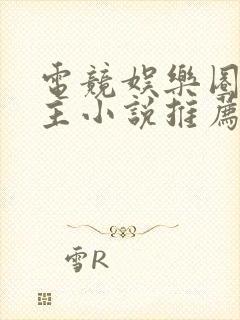 電競娛樂圈
主小說推薦
雪R